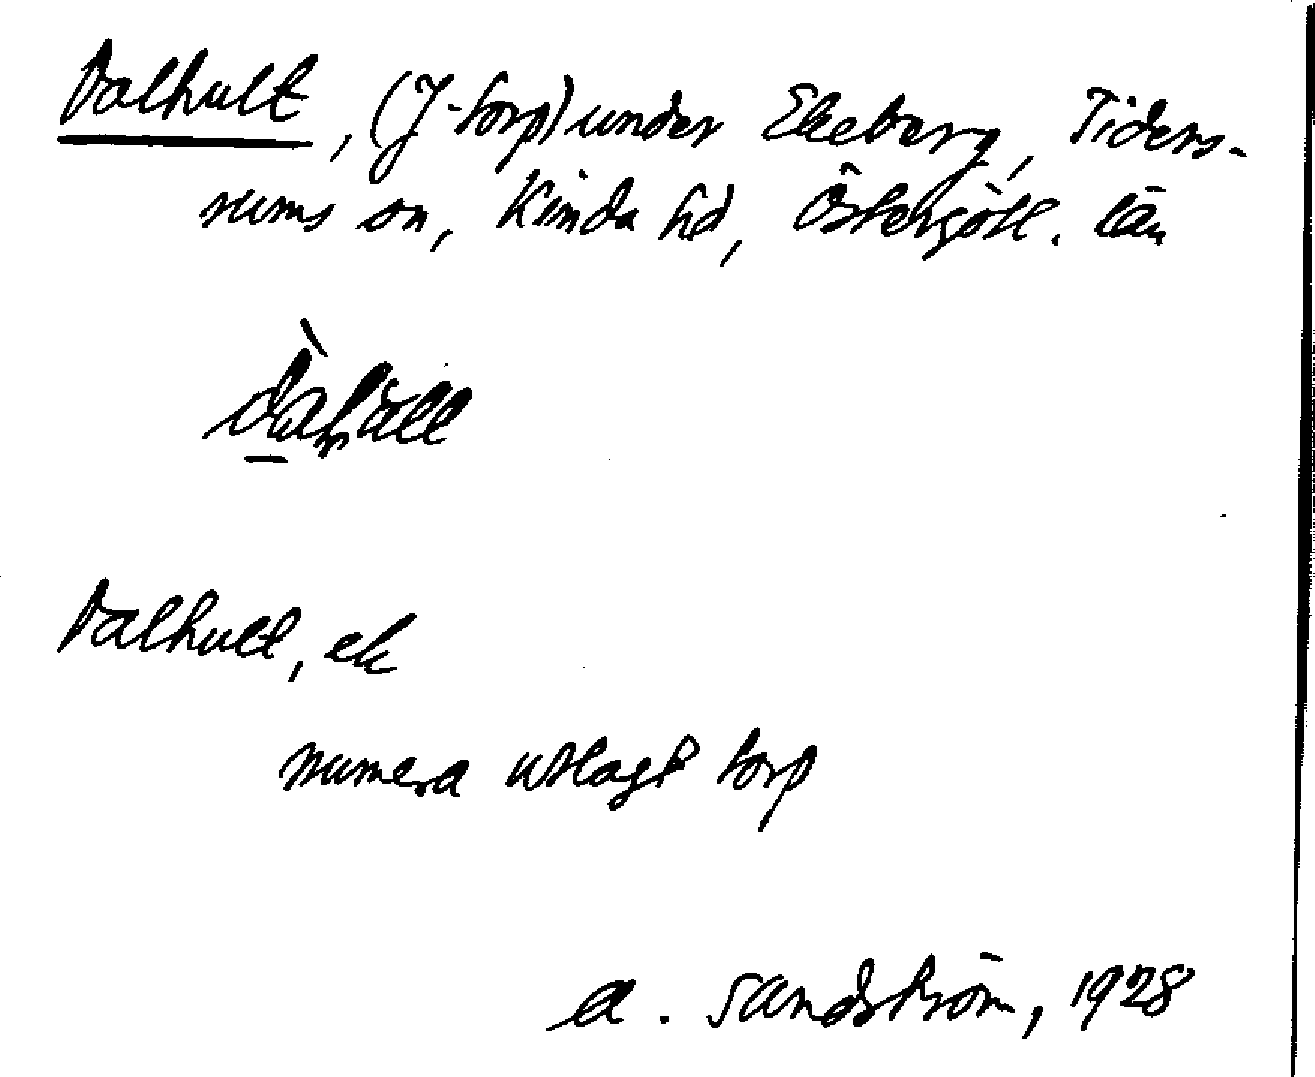 Dalhult, (J-torp) under Ekeberg, Tiders-
rums sn, Kinda hd, Östergötl. län
Dalhult, ek
numera utlagt torp
A. Sandström, 1928